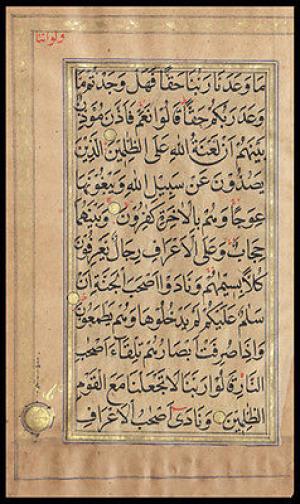 ولو اننا
مَا وَعَدَنَا رَبُّنَا حَقًّا فَهَلْ وَجَدْتُمْ مَا
وَعَدَ رَبُّكُمْ حَقًّا قَالُوا نَعَمْ فَاَذَّنَ مُؤَذِّنٌ
بَيْنَهُمْ اَنْ لَعْنَةُ اللّٰهِ عَلَى الظّٰلِمِينَ الَّذِينَ
يَصُدُّونَ عَنْ سَبِيلِ اللّٰهِ وَيَبْغُونَهَا
عِوَجًا وَهُمْ بِالْاٰخِرَةِ كٰفِرُونَ وَبَيْنَهُمَا
حِجَابٌ وَعَلَى الْاَعْرَافِ رِجَالٌ يَعْرِفُونَ
كُلًّا بِسِيمٰهُمْ وَنَادَوْا اَصْحٰبَ الْجَنَّةِ اَنْ
سَلٰمٌ عَلَيْكُمْ لَمْ يَدْخُلُوهَا وَهُمْ يَطْمَعُونَ
وَاِذَا صُرِفَتْ اَبْصَارُهُمْ تِلْقَاءَ اَصْحٰبِ
النَّارِ قَالُوا رَبَّنَا لَا تَجْعَلْنَا مَعَ الْقَوْمِ
الظّٰلِمِينَ وَنَادٰى اَصْحٰبُ الْاَعْرَافِ